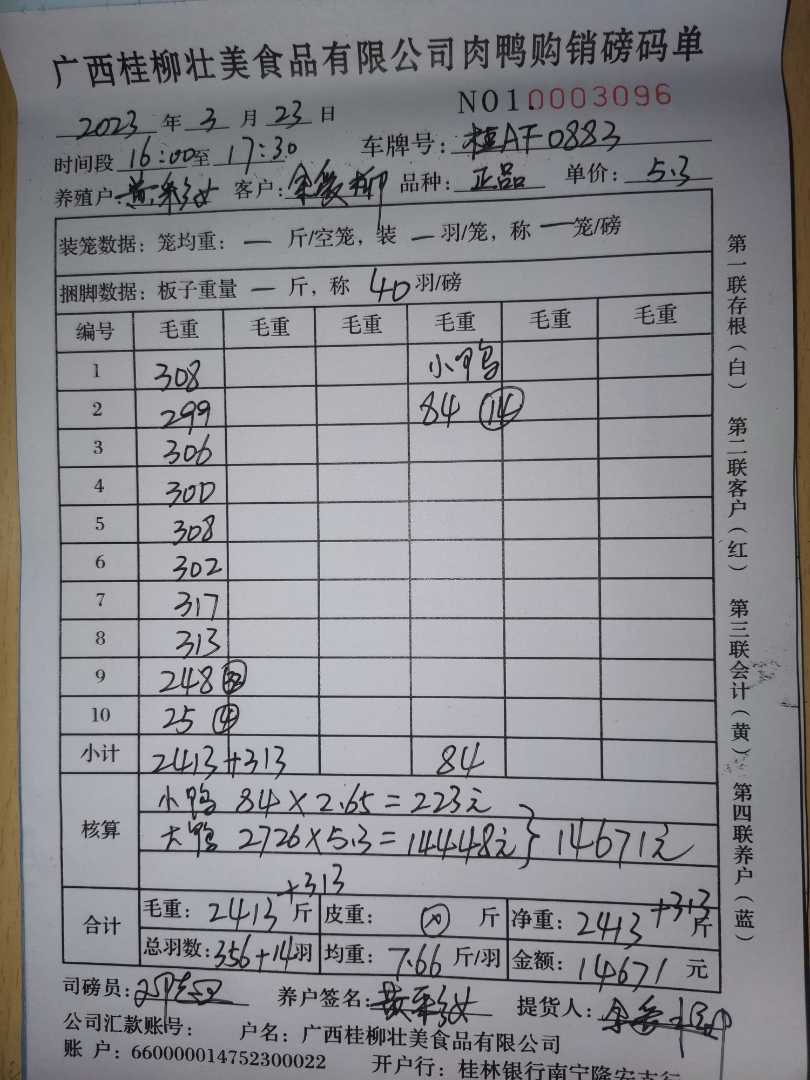 广西桂柳壮美食品有限公司肉鸭购销磅码单
NO1.0003096
2023 年 3 月 23 日
时间段 16:00 至 17:30 车牌号: 桂AF0883
养殖户: 黄 客户: 余 柳 品种: 正品 单价: 5.3
装笼数据: 笼均重: — 斤/空笼, 装 — 羽/笼, 称 — 笼/磅
捆脚数据: 板子重量 — 斤, 称 40 羽/磅
编号 毛重 毛重 毛重 毛重 毛重 毛重
1 308 小鸭
2 299 84 14
3 306
4 300
5 308
6 302
7 317
8 313
9 248 32
10 25 4
小计 2413+313 84
核算 小鸭 84×2.65=223元
大鸭 2726×5.3=14448元 } 14671元
+313 +313
合计 毛重: 2413 斤 皮重: 斤 净重: 2413 斤
总羽数: 356+14 羽 均重: 7.66 斤/羽 金额: 14671 元
司磅员: 养户签名: 黄 提货人: 余
公司汇款账号: 户名: 广西桂柳壮美食品有限公司
账 户: 660000014752300022 开户行: 桂林银行南宁隆安支行
第一联存根(白) 第二联客户(红) 第三联会计(黄) 第四联养户(蓝)